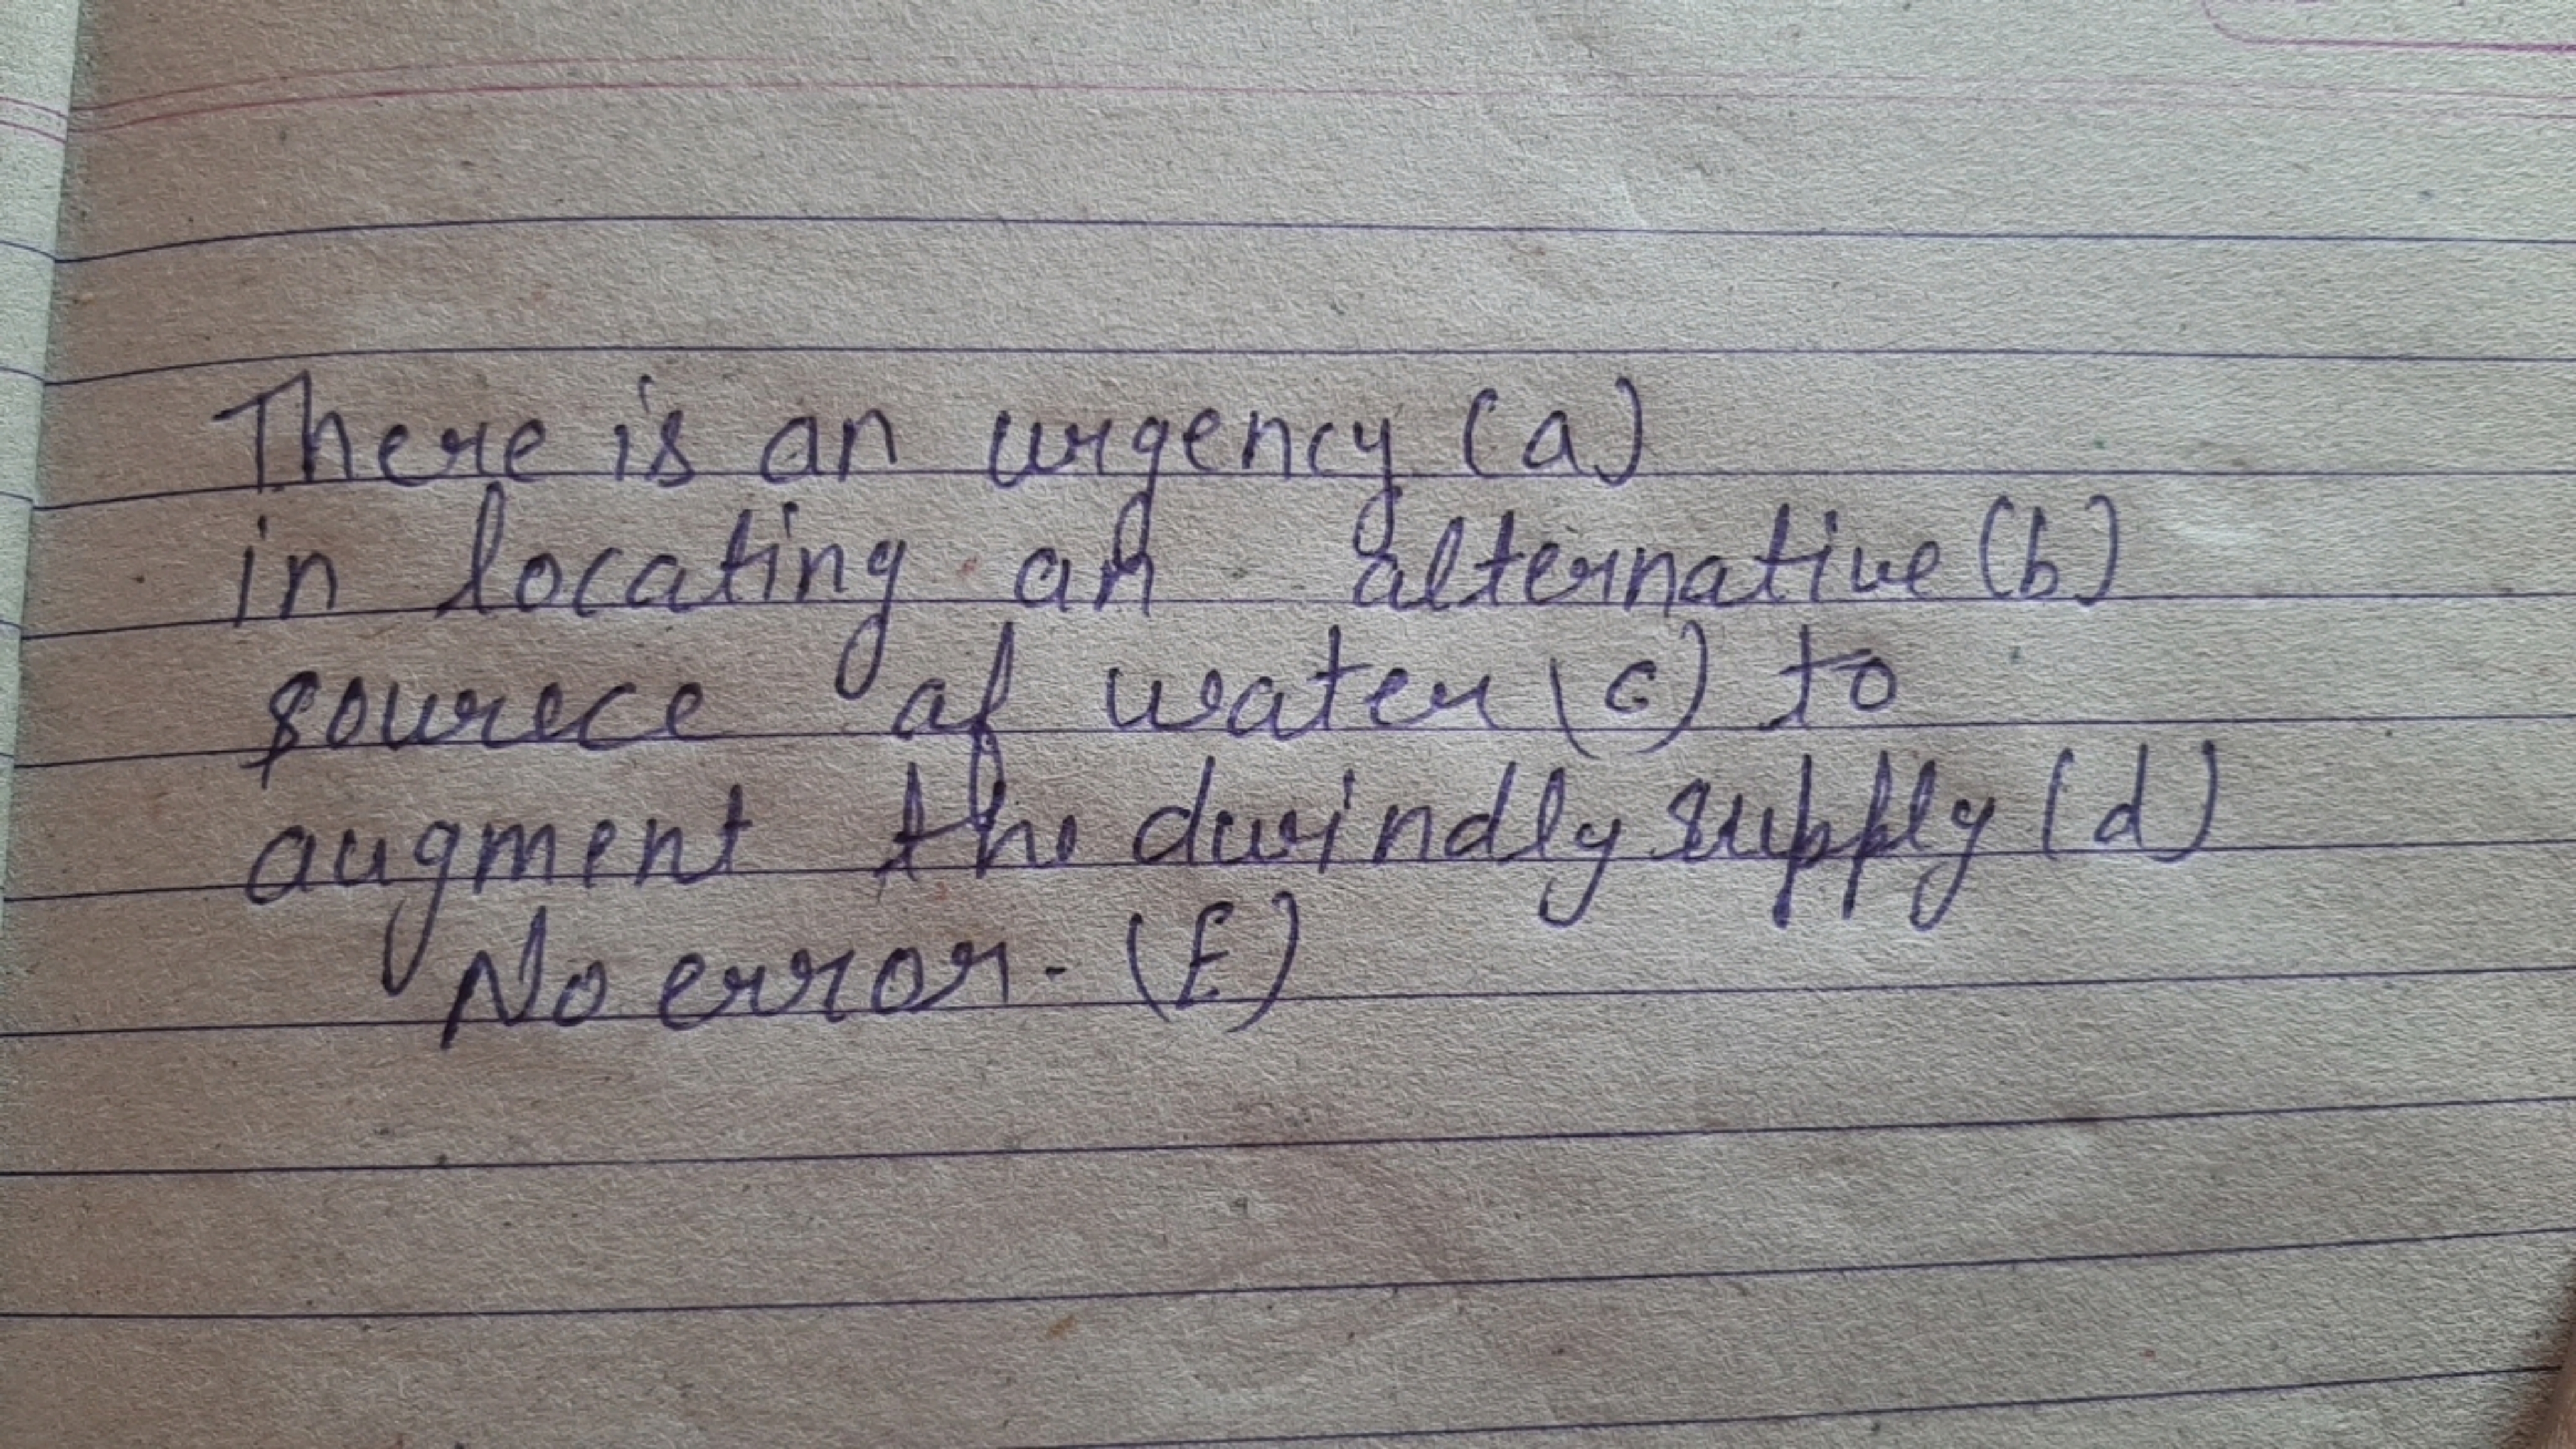 There is an urgency (a)
in locating an alternative (b)
sourece of water (c) to
augment the dwindly supply (d)
No error. (E)